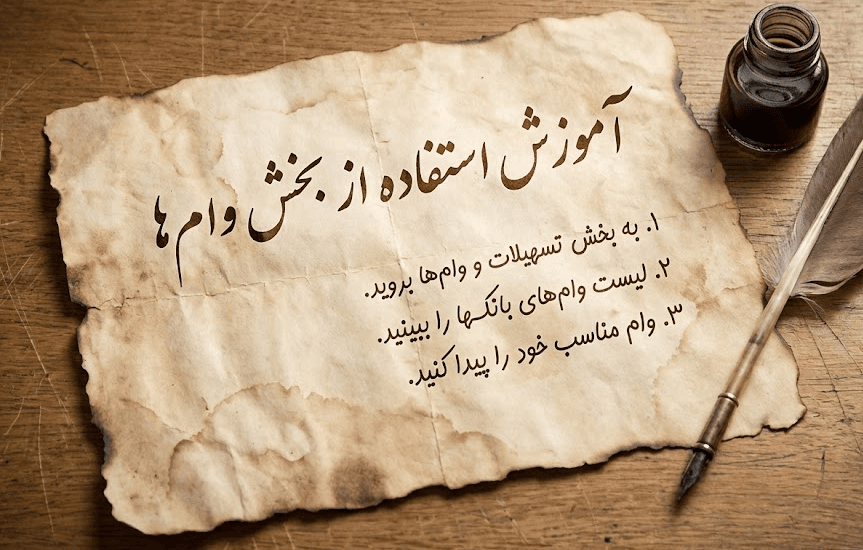 آموزش استفاده از بخش وام ها
۱. به بخش تسهیلات و وام‌ها بروید.
۲. لیست وام‌های بانکها را ببینید.
۳. وام مناسب خود را پیدا کنید.